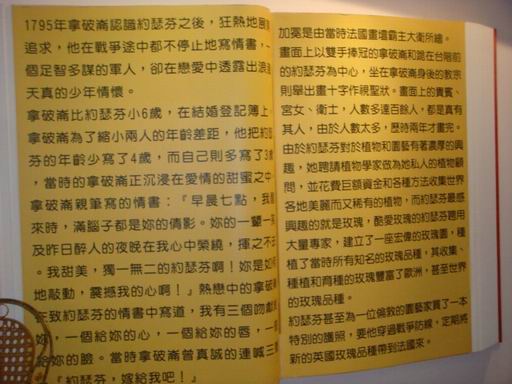 1795年拿破崙認識約瑟芬之後，狂熱地
追求，他在戰爭途中都不停止地寫情書，一
個足智多謀的軍人，卻在戀愛中透露出浪漫
天真的少年情懷。
拿破崙比約瑟芬小6歲，在結婚登記簿上
拿破崙為了縮小兩人的年齡差距，他把約瑟
芬的年齡少寫了4歲，而自己則多寫了
，當時的拿破崙正沉浸在愛情的甜蜜之中
拿破崙親筆寫的情書：『早晨七點，我
來時，滿腦子都是妳的倩影。妳的一顰一
及昨日醉人的夜晚在我心中縈繞，揮之不
。我甜美，獨一無二的約瑟芬啊！妳是如
地敲動，震撼我的心啊！』熱戀中的拿破
在致約瑟芬的情書中寫道，我有三個吻
妳，一個給妳的心，一個給妳的唇，一
給妳的臉。當時拿破崙曾真誠的連喊三
『約瑟芬，嫁給我吧！』
加冕是由當時法國畫壇霸主大衛所繪。
畫面上以雙手捧冠的拿破崙和跪在台階前
的約瑟芬為中心，坐在拿破崙身後的教宗
則舉出畫十字作祝聖狀。畫面上的貴賓、
宮女、衛士，人數多達百餘人，都是真有
其人，由於人數太多，歷時兩年才畫完。
由於約瑟芬對於植物和園藝有著濃厚的興
趣，她聘請植物學家做為她私人的植物顧
問，並花費巨額資金和各種方法收集世界
各地美麗而又稀有的植物，而約瑟芬最感
興趣的就是玫瑰，酷愛玫瑰的約瑟芬聘用
大量專家，建立了一座宏偉的玫瑰園，種
植了當時所有知名的玫瑰品種，其收集、
種植和育種的玫瑰豐富了歐洲，甚至世界
的玫瑰品種。
約瑟芬甚至為一位倫敦的園藝家買了一本
特別的護照，要他穿過戰爭防線，定期將
新的英國玫瑰品種帶到法國來。